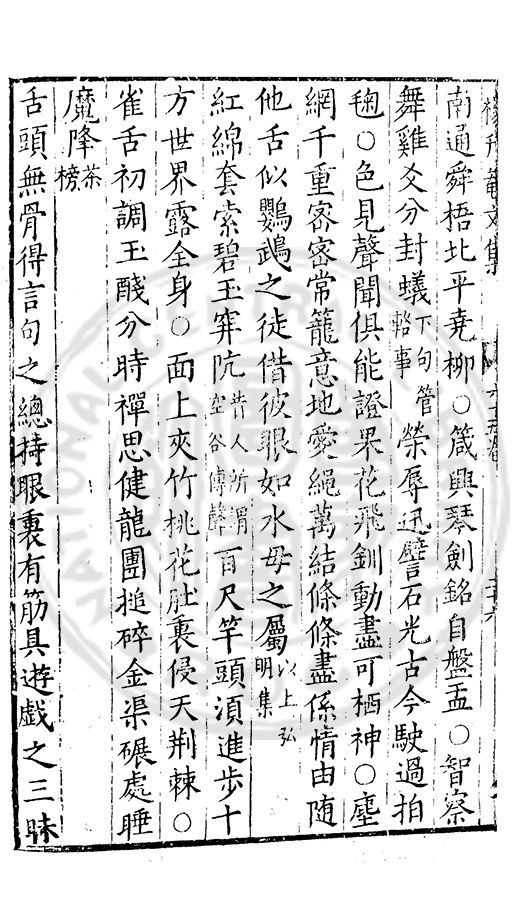 楊升菴文集
南通舜梧北平堯柳○箴興琴劍銘自盤盂○智察
舞雞爻分封蟻下句管輅事榮辱迅譬石光古今駛過拍
毱○色見聲聞俱能證果花飛釧動盡可栖神○塵
網千重密密常籠意地愛繩萬結條條盡係情由随
他舌似鸚鵡之徒借彼眼如水母之屬以上弘明集
紅綿套索碧玉穽阬昔人所謂空谷傳聲百尺竿頭湏進步十
方世界露全身○面上夾竹桃花肚裏侵天荆棘○
雀舌初調玉醆分時禪思健龍團搥碎金渠碾處睡
魔降茶榜
舌頭無骨得言句之總持眼裏有筋具遊戲之三昧
NATIONAL CENTRAL